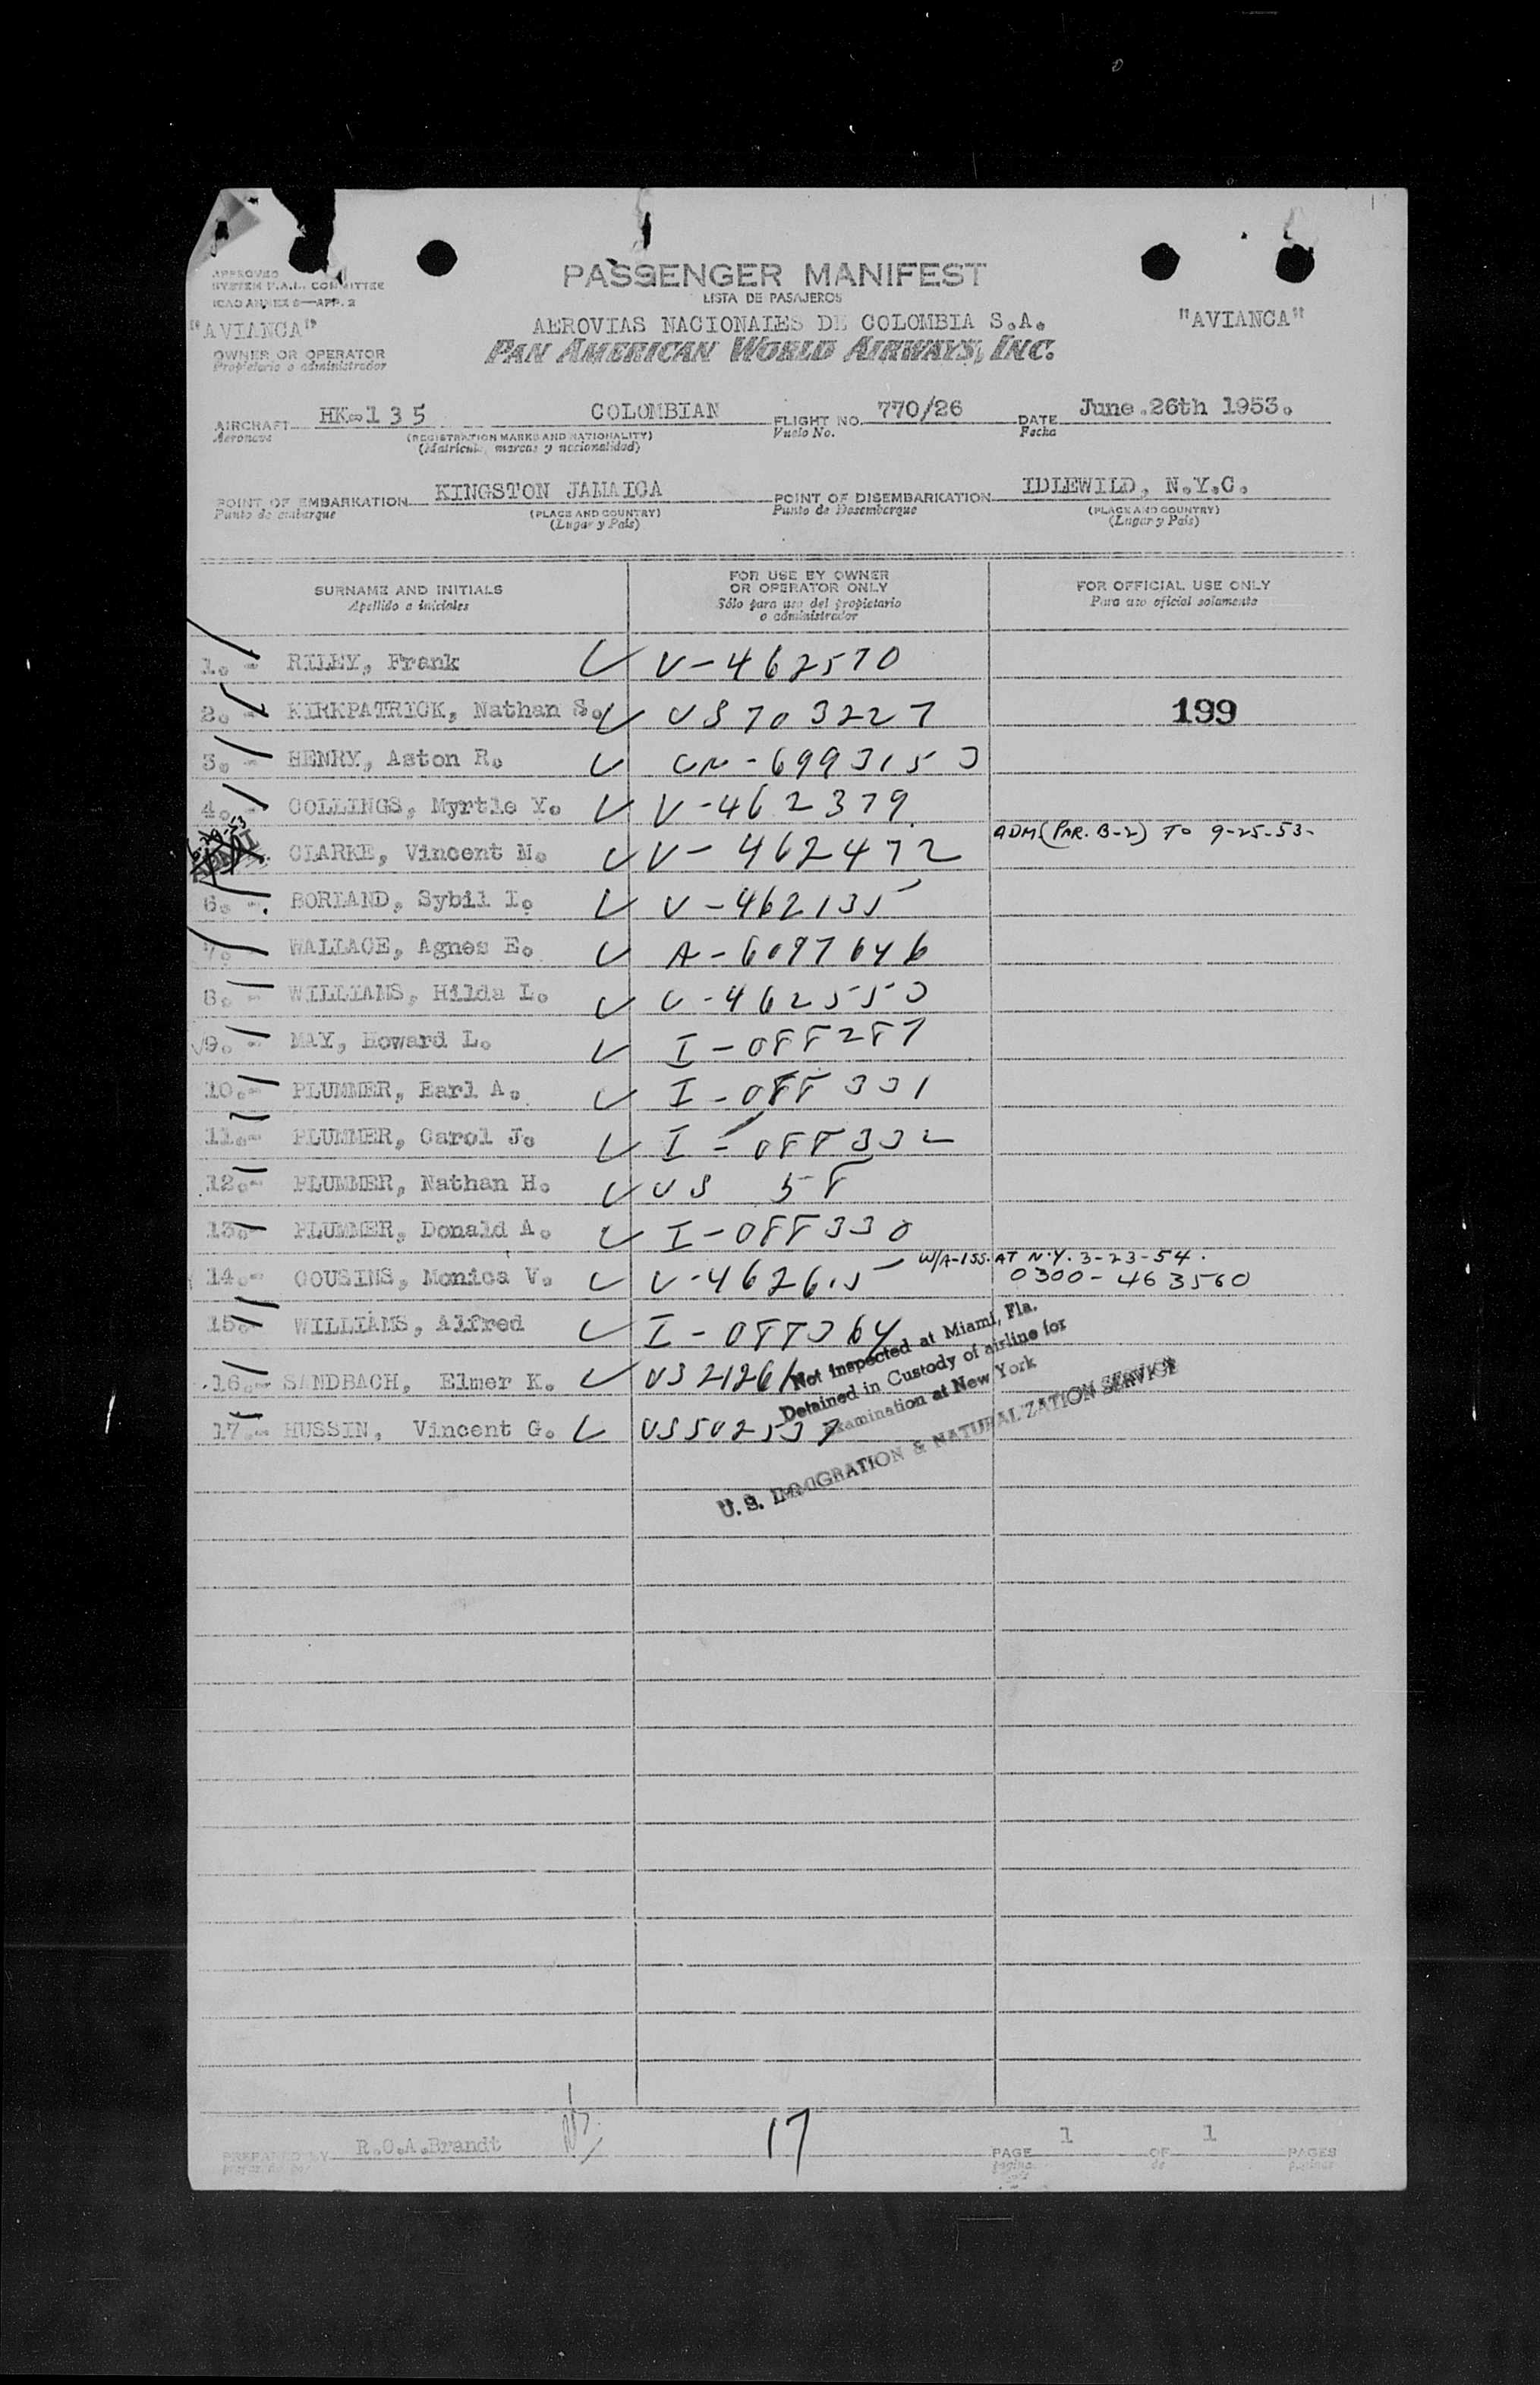 APPROVED
SYSTEM F.A.L. COMMITTEE
ICAO ANNEX 9—APP. 2
PASSENGER MANIFEST
LISTA DE PASAJEROS
"AVIANCA"
AEROVIAS NACIONALES DE COLOMBIA S.A.
"AVIANCA"
OWNER OR OPERATOR
Propietario o administrador
PAN AMERICAN WORLD AIRWAYS, INC.
AIRCRAFT HK-135 COLOMBIAN FLIGHT NO. 770/26 DATE June.26th 1953.
Aeronave (REGISTRATION MARKS AND NATIONALITY) Vuelo No. Fecha
(Matricula, marcas y nacionalidad)
POINT OF EMBARKATION KINGSTON JAMAICA POINT OF DISEMBARKATION IDLEWILD, N.Y.C.
Punto de embarque (PLACE AND COUNTRY) Punto de Desembarque (PLACE AND COUNTRY)
(Lugar y País) (Lugar y País)
SURNAME AND INITIALS
Apellido e iniciales
FOR USE BY OWNER
OR OPERATOR ONLY
Sólo para uso del propietario
o administrador
FOR OFFICIAL USE ONLY
Para uso oficial solamente
1.- RILEY, Frank V-462570
2.- KIRKPATRICK, Nathan S. US703227 199
3.- HENRY, Aston R. UN-6993153
4.- COLLINGS, Myrtle Y. V-462379
ADM (PAR. B-2) TO 9-25-53-
CLARKE, Vincent N. V-462472
6.- BORLAND, Sybil I. V-462135
7.- WALLACE, Agnes E. A-6097646
8.- WILLIAMS, Hilda L. V-462553
9.- MAY, Howard L. I-088287
10.- PLUMMER, Earl A. I-088331
11.- PLUMMER, Carol J. I-088332
12.- PLUMMER, Nathan H. US 58
13.- PLUMMER, Donald A. I-088330
W/A-ISS. AT N.Y. 3-23-54.
14.- COUSINS, Monica V. V-462615 0300-463560
15.- WILLIAMS, Alfred I-088364
16.- SANDBACH, Elmer K. US2126
17.- HUSSIN, Vincent G. US502537
Not Inspected at Miami, Fla.
Detained in Custody of airline for
examination at New York
U.S. IMMIGRATION & NATURALIZATION SERVICE
PREPARED BY R.O.A.Brandt 17 PAGE 1 OF 1 PAGES
preparado por página de páginas